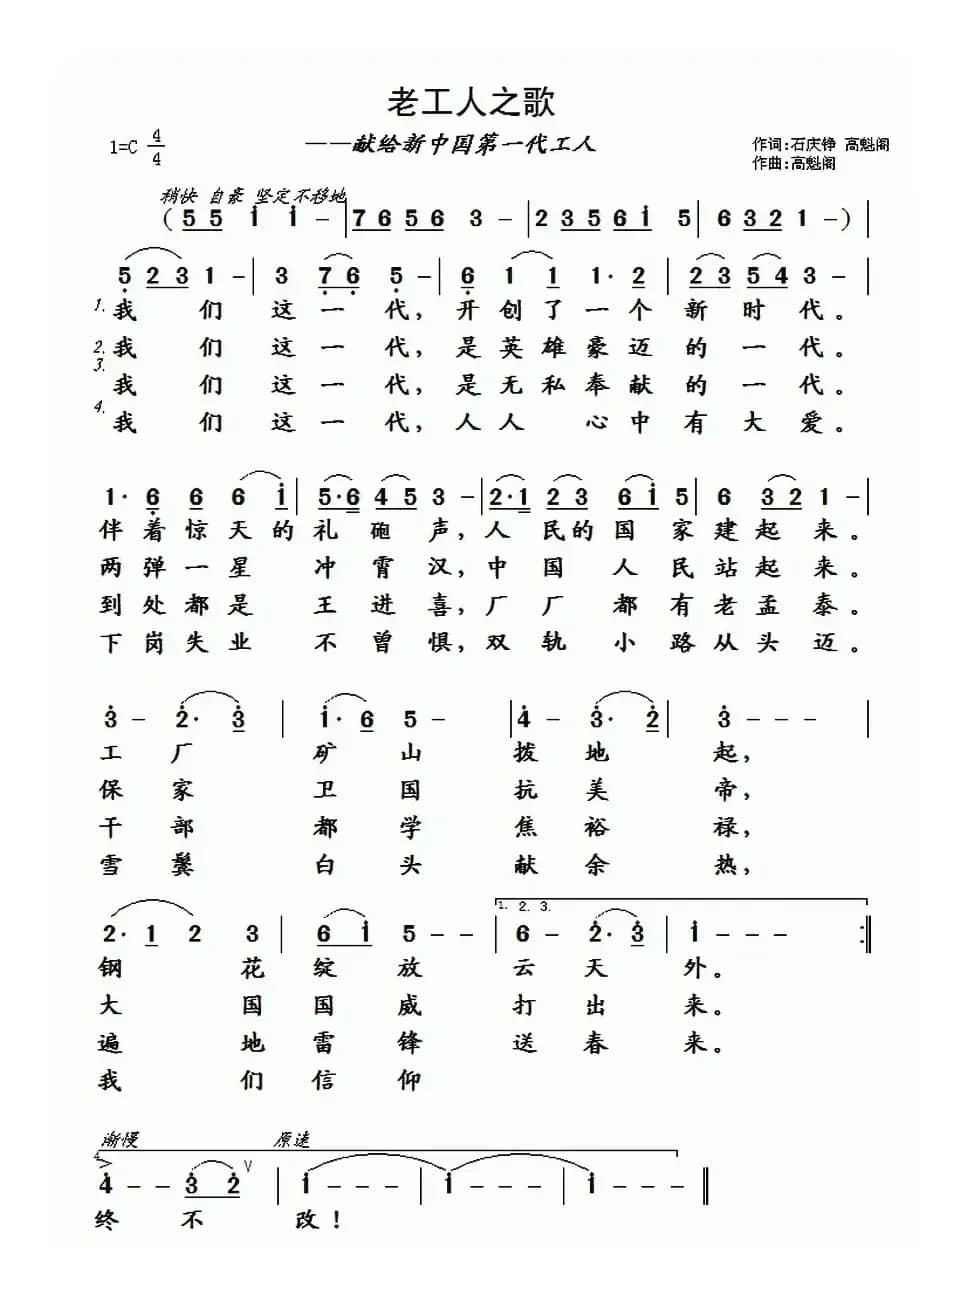 老工人之歌
1=C 4/4
——献给新中国第一代工人
作词:石庆铮 高魁阁
作曲:高魁阁
稍快 自豪 坚定不移地
( 5 5 i i - | 7 6 5 6 3 - | 2 3 5 6 i 5 | 6 3 2 1 - ) |
5 2 3 1 - | 3 7 6 5 - | 6 1 1 1· 2 | 2 3 5 4 3 - |
1. 我们这一代, 开创了一个新时代。
2. 我们这一代, 是英雄豪迈的一代。
3. 我们这一代, 是无私奉献的一代。
4. 我们这一代, 人人心中有大爱。
1· 6 6 6 i | 5·6 4 5 3 - | 2·1 2 3 6 i 5 | 6 3 2 1 - |
伴着惊天的礼砲声, 人民的国家建起来。
两弹一星冲霄汉, 中国人民站起来。
到处都是王进喜, 厂厂都有老孟泰。
下岗失业不曾惧, 双轨小路从头迈。
3 - 2· 3 | i· 6 5 - | 4 - 3· 2 | 3 - - - |
工厂矿山拨地起,
保家卫国抗美帝,
干部都学焦裕禄,
雪鬓白头献余热,
1. 2. 3.
2· 1 2 3 | 6 i 5 - - | 6 - 2· 3 | i - - - :||
钢花绽放云天外。
大国国威打出来。
遍地雷锋送春来。
我们信仰
渐慢 原速
4.
> V
4 - 3 2 | i - - - | i - - - | i - - - ||
终不改!